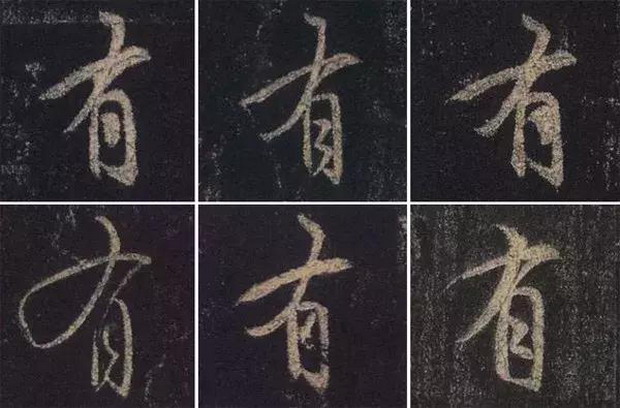 有 有 有
有 有 有